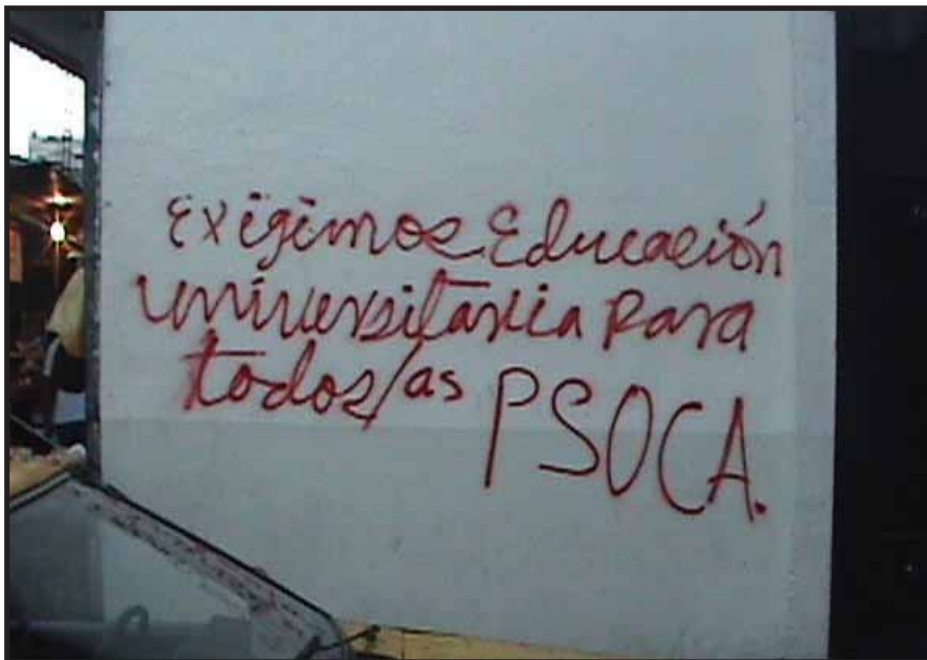 Exigimos Educación
universitaria para
todos/as PSOCA.